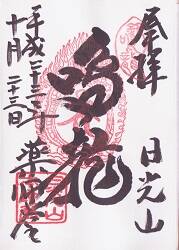 奉拝
日光山
鳴龍
薬師堂
平成二十三年
十月二十三日